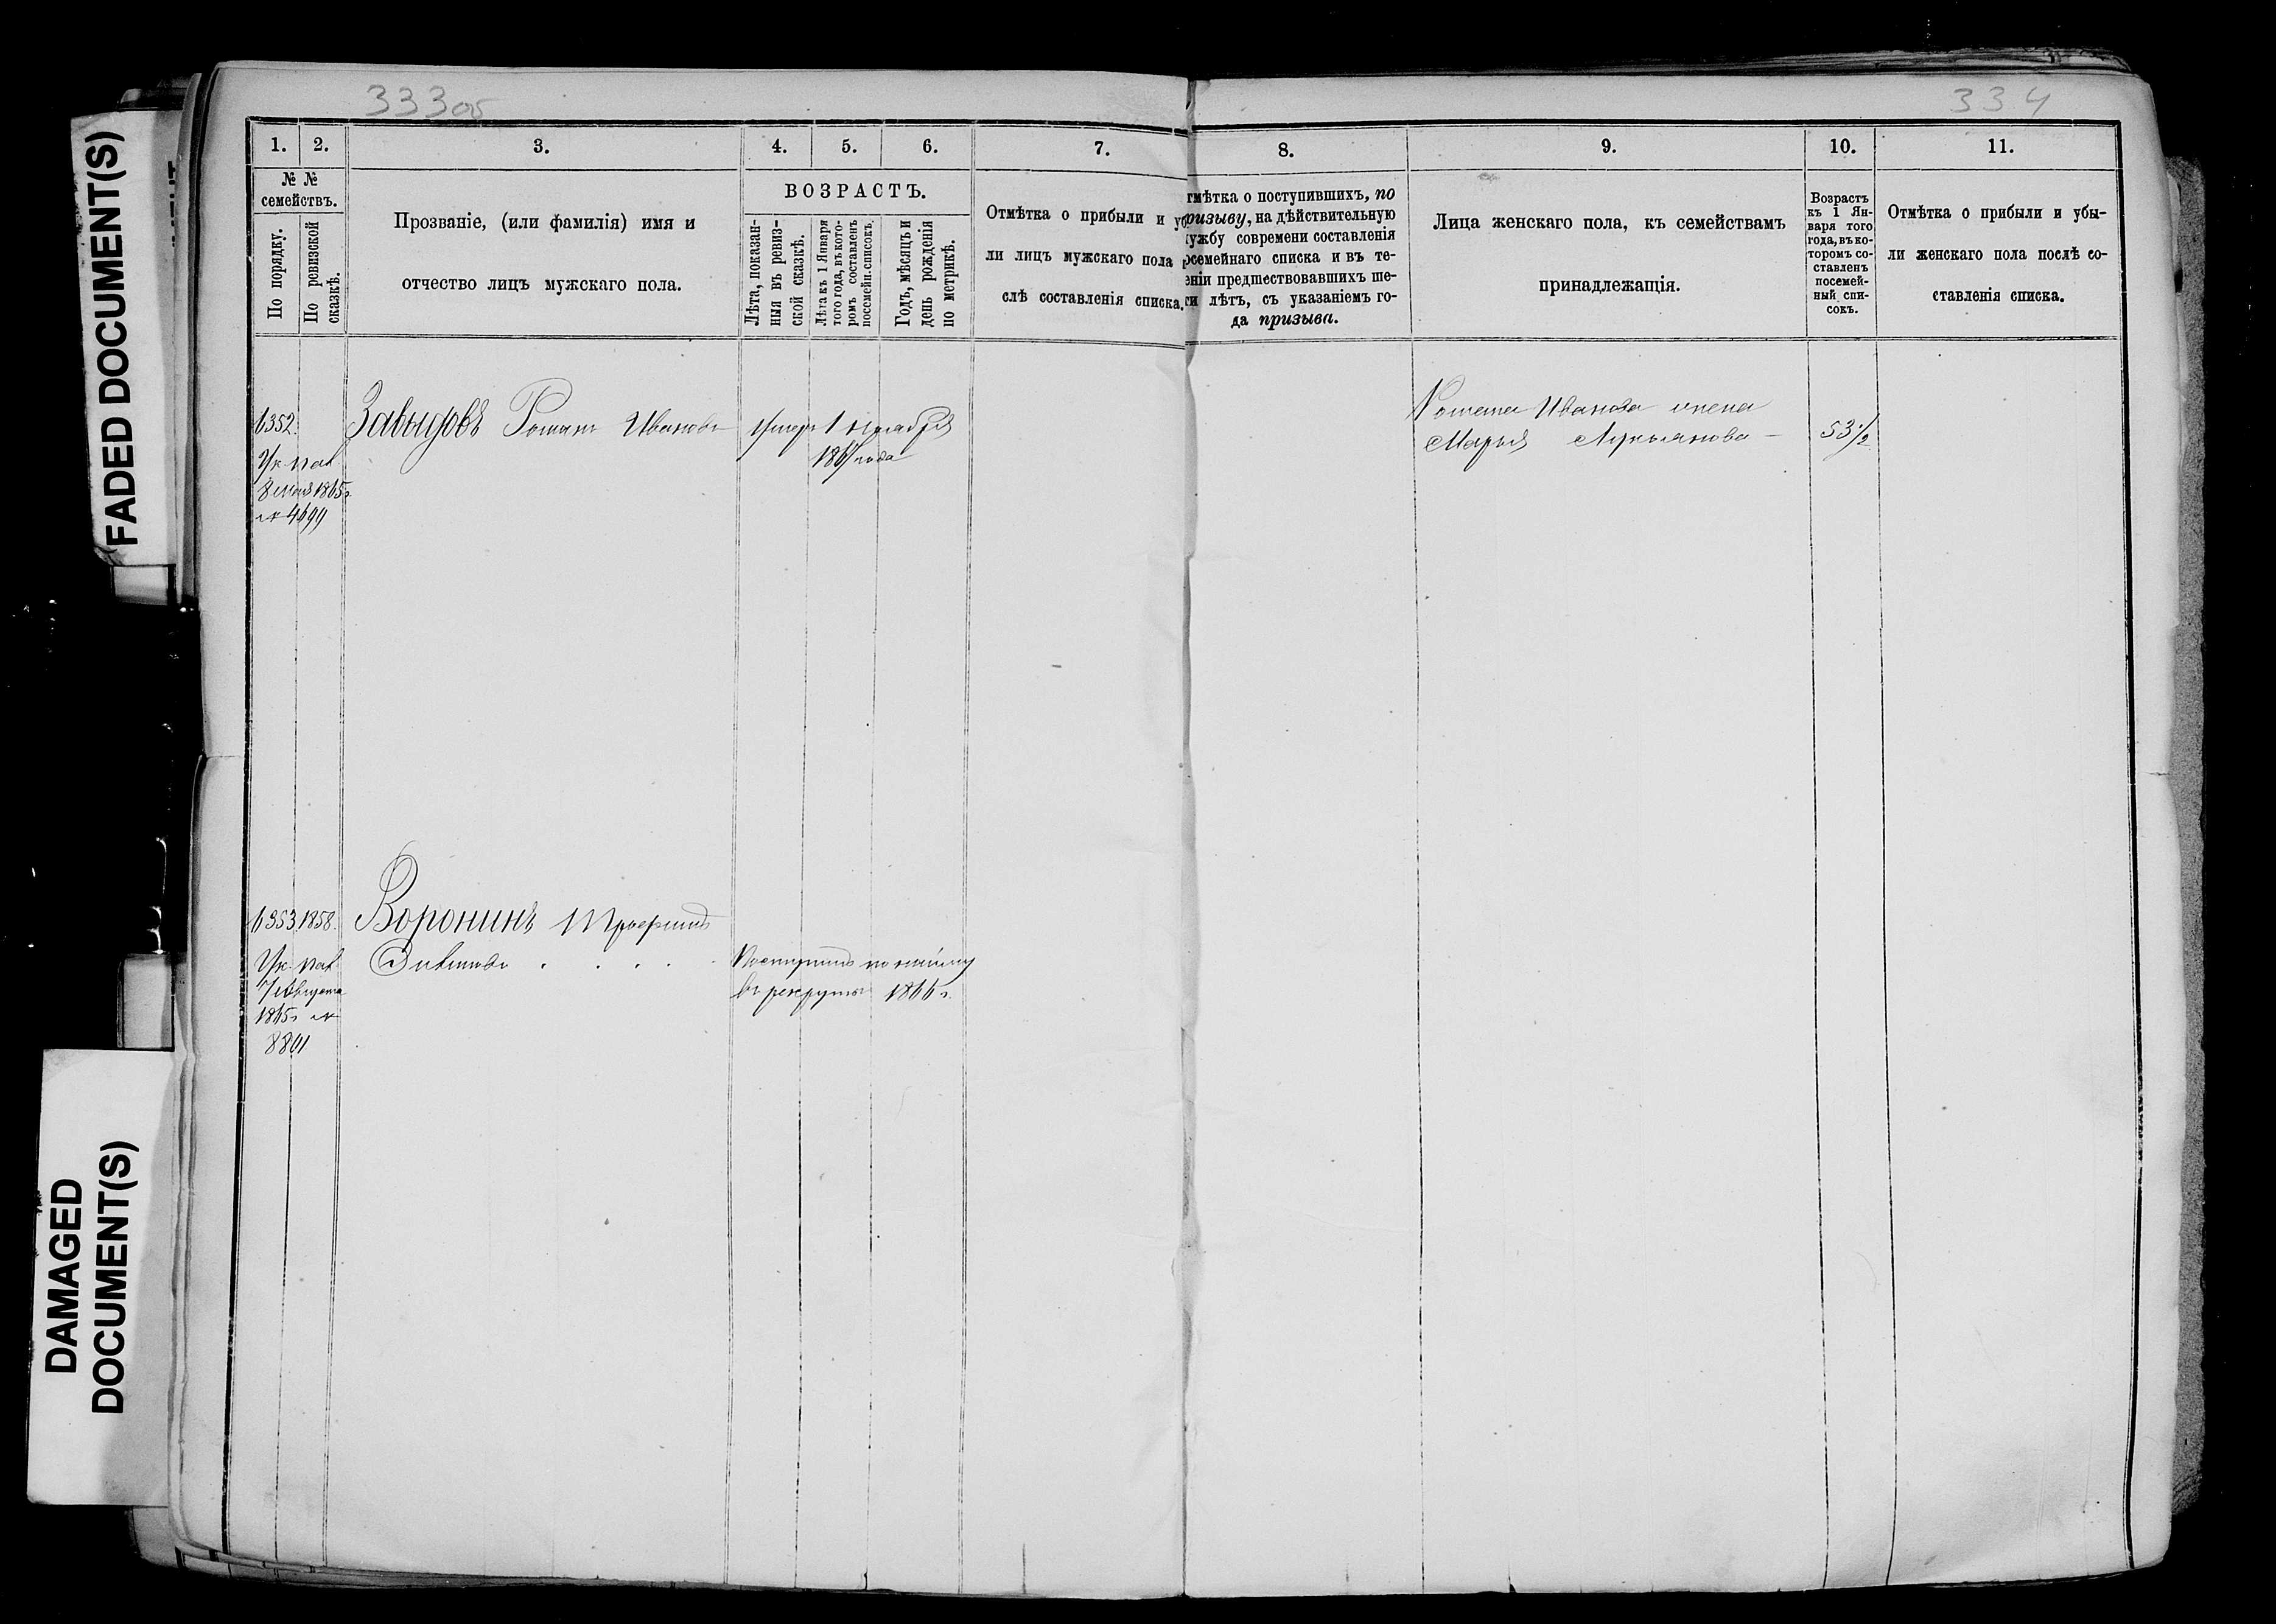 FADED DOCUMENT(S)
DAMAGED
DOCUMENT(S)
333об
334
1. 2. 3. 4. 5. 6. 7.
№ №
семействъ.
По порядку.
По ревизской
сказкѣ.
Прозваніе, (или фамилія) имя и
отчество лицъ мужскаго пола.
ВОЗРАСТЪ.
Лѣта, показан-
ныя въ ревиз-
ской сказкѣ.
Лѣта къ 1 Января
того года, въ кото-
ромъ составленъ
посемейн. списокъ.
Годъ, мѣсяцъ и
день рожденія
по метрикѣ.
Отмѣтка о прибыли и уб
ли лицъ мужскаго пола п
слѣ составленія списка.
8. 9. 10. 11.
тмѣтка о поступившихъ, по
ризыву, на дѣйствительную
ужбу современи составленія
осемейнаго списка и въ те-
еніи предшествовавшихъ ше-
си лѣтъ, съ указаніемъ го-
да призыва.
Лица женскаго пола, къ семействамъ
принадлежащія.
Возрастъ
къ 1 Ян-
варя того
года, въ ко-
торомъ со-
ставленъ
посемей-
ный спи-
сокъ.
Отмѣтка о прибыли и убы-
ли женскаго пола послѣ со-
ставленія списка.
6352. Романъ Ивановъ умеръ 1 ноября
1861 года
Ук. пал.
8 1865г.
№ 4699
Романа Иванова жена
Марья Лукьянова – 53½
6353. 1858. Воронинъ Трофимъ
Поступилъ по найму
въ рекруты 1866 г.
Ук. пал.
7 Августа
1865г №
8801